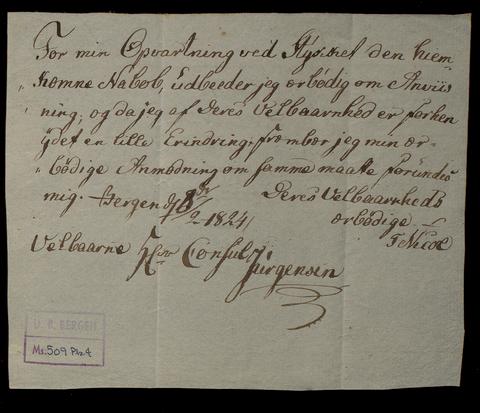 For min Opvartning ved Stykket den hiem-
„ komne Nabob, udbeeder jeg ærbødig om Anviis
„ ning; og da jeg af Deres Velbaarnhed er forken
„ ydet en lille Erindring; frembær jeg min ær-
„ bødige Anmodning om samme maatte forundes
mig. Bergen d 8/2 1824/ Deres Velbaarnheds
ærbødige
T Nicol
Velbaarne Hr Consul
Jürgensen
U. B. BERGEN
Ms. 509 Pk. 4